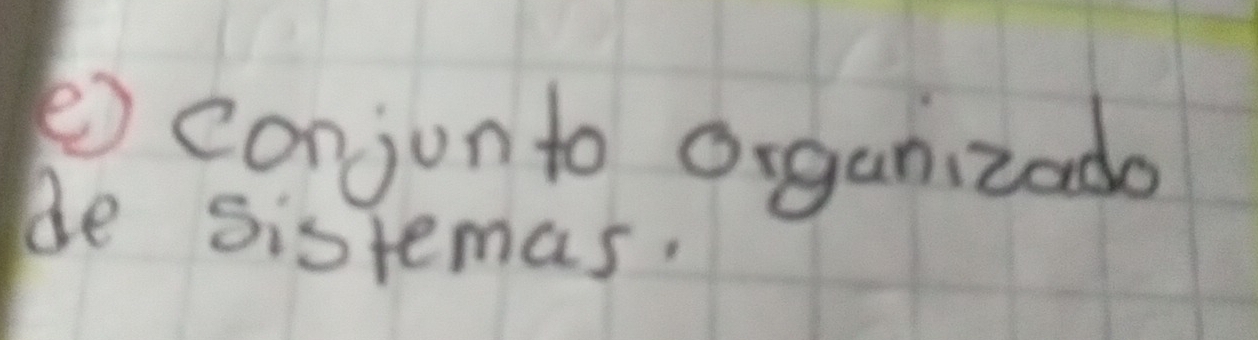 e) conjunto organizado
de sistemas.